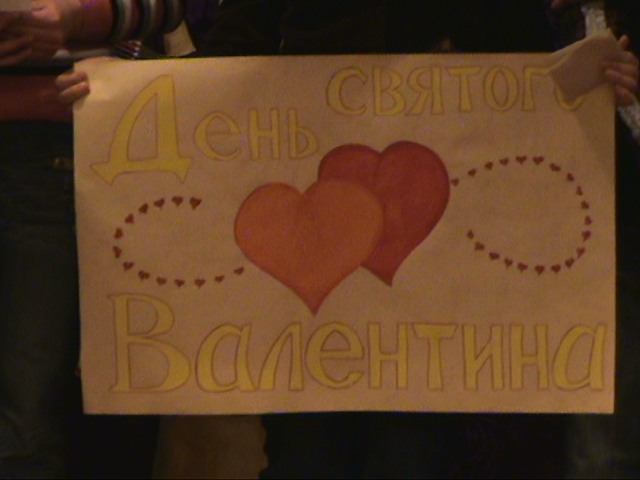 День святого
Валентина